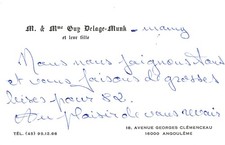 M. & Mme Guy Delage-Munk - mamy
et leur fille
Nous nous joignons tous
et vous faisons de grosses
bises pour 82.
Au plaisir de vous revoir
18, AVENUE GEORGES CLÉMENCEAU
TÉL. (45) 92.12.68 16000 ANGOULÊME